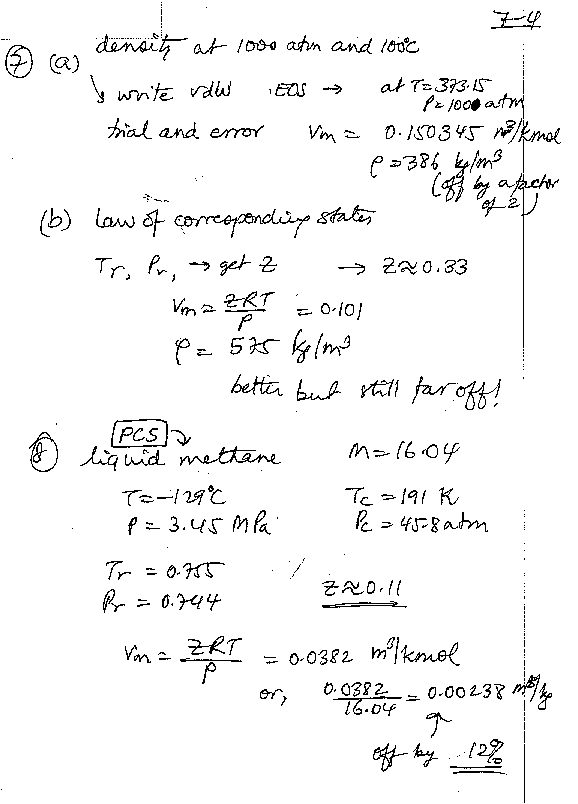 7-4
⑦ (a) density at 1000 atm and 100°C
↳ write vdW EOS → at T=373.15
P=1000 atm
trial and error Vm = 0.150345 m³/kmol
ρ = 386 kg/m³
(off by a factor of 2)
(b) law of corresponding states
Tr, Pr, → get Z → Z≈0.33
Vm = ZRT/P = 0.101
ρ = 575 kg/m³
better but still far off!
PCS
⑧ liquid methane M=16.04
T=-129°C Tc = 191 K
P = 3.45 MPa Pc = 45.8 atm
Tr = 0.755
Pr = 0.744 Z≈0.11
Vm = ZRT/P = 0.0382 m³/kmol
or, 0.0382/16.04 = 0.00238 m³/kg
off by 12%